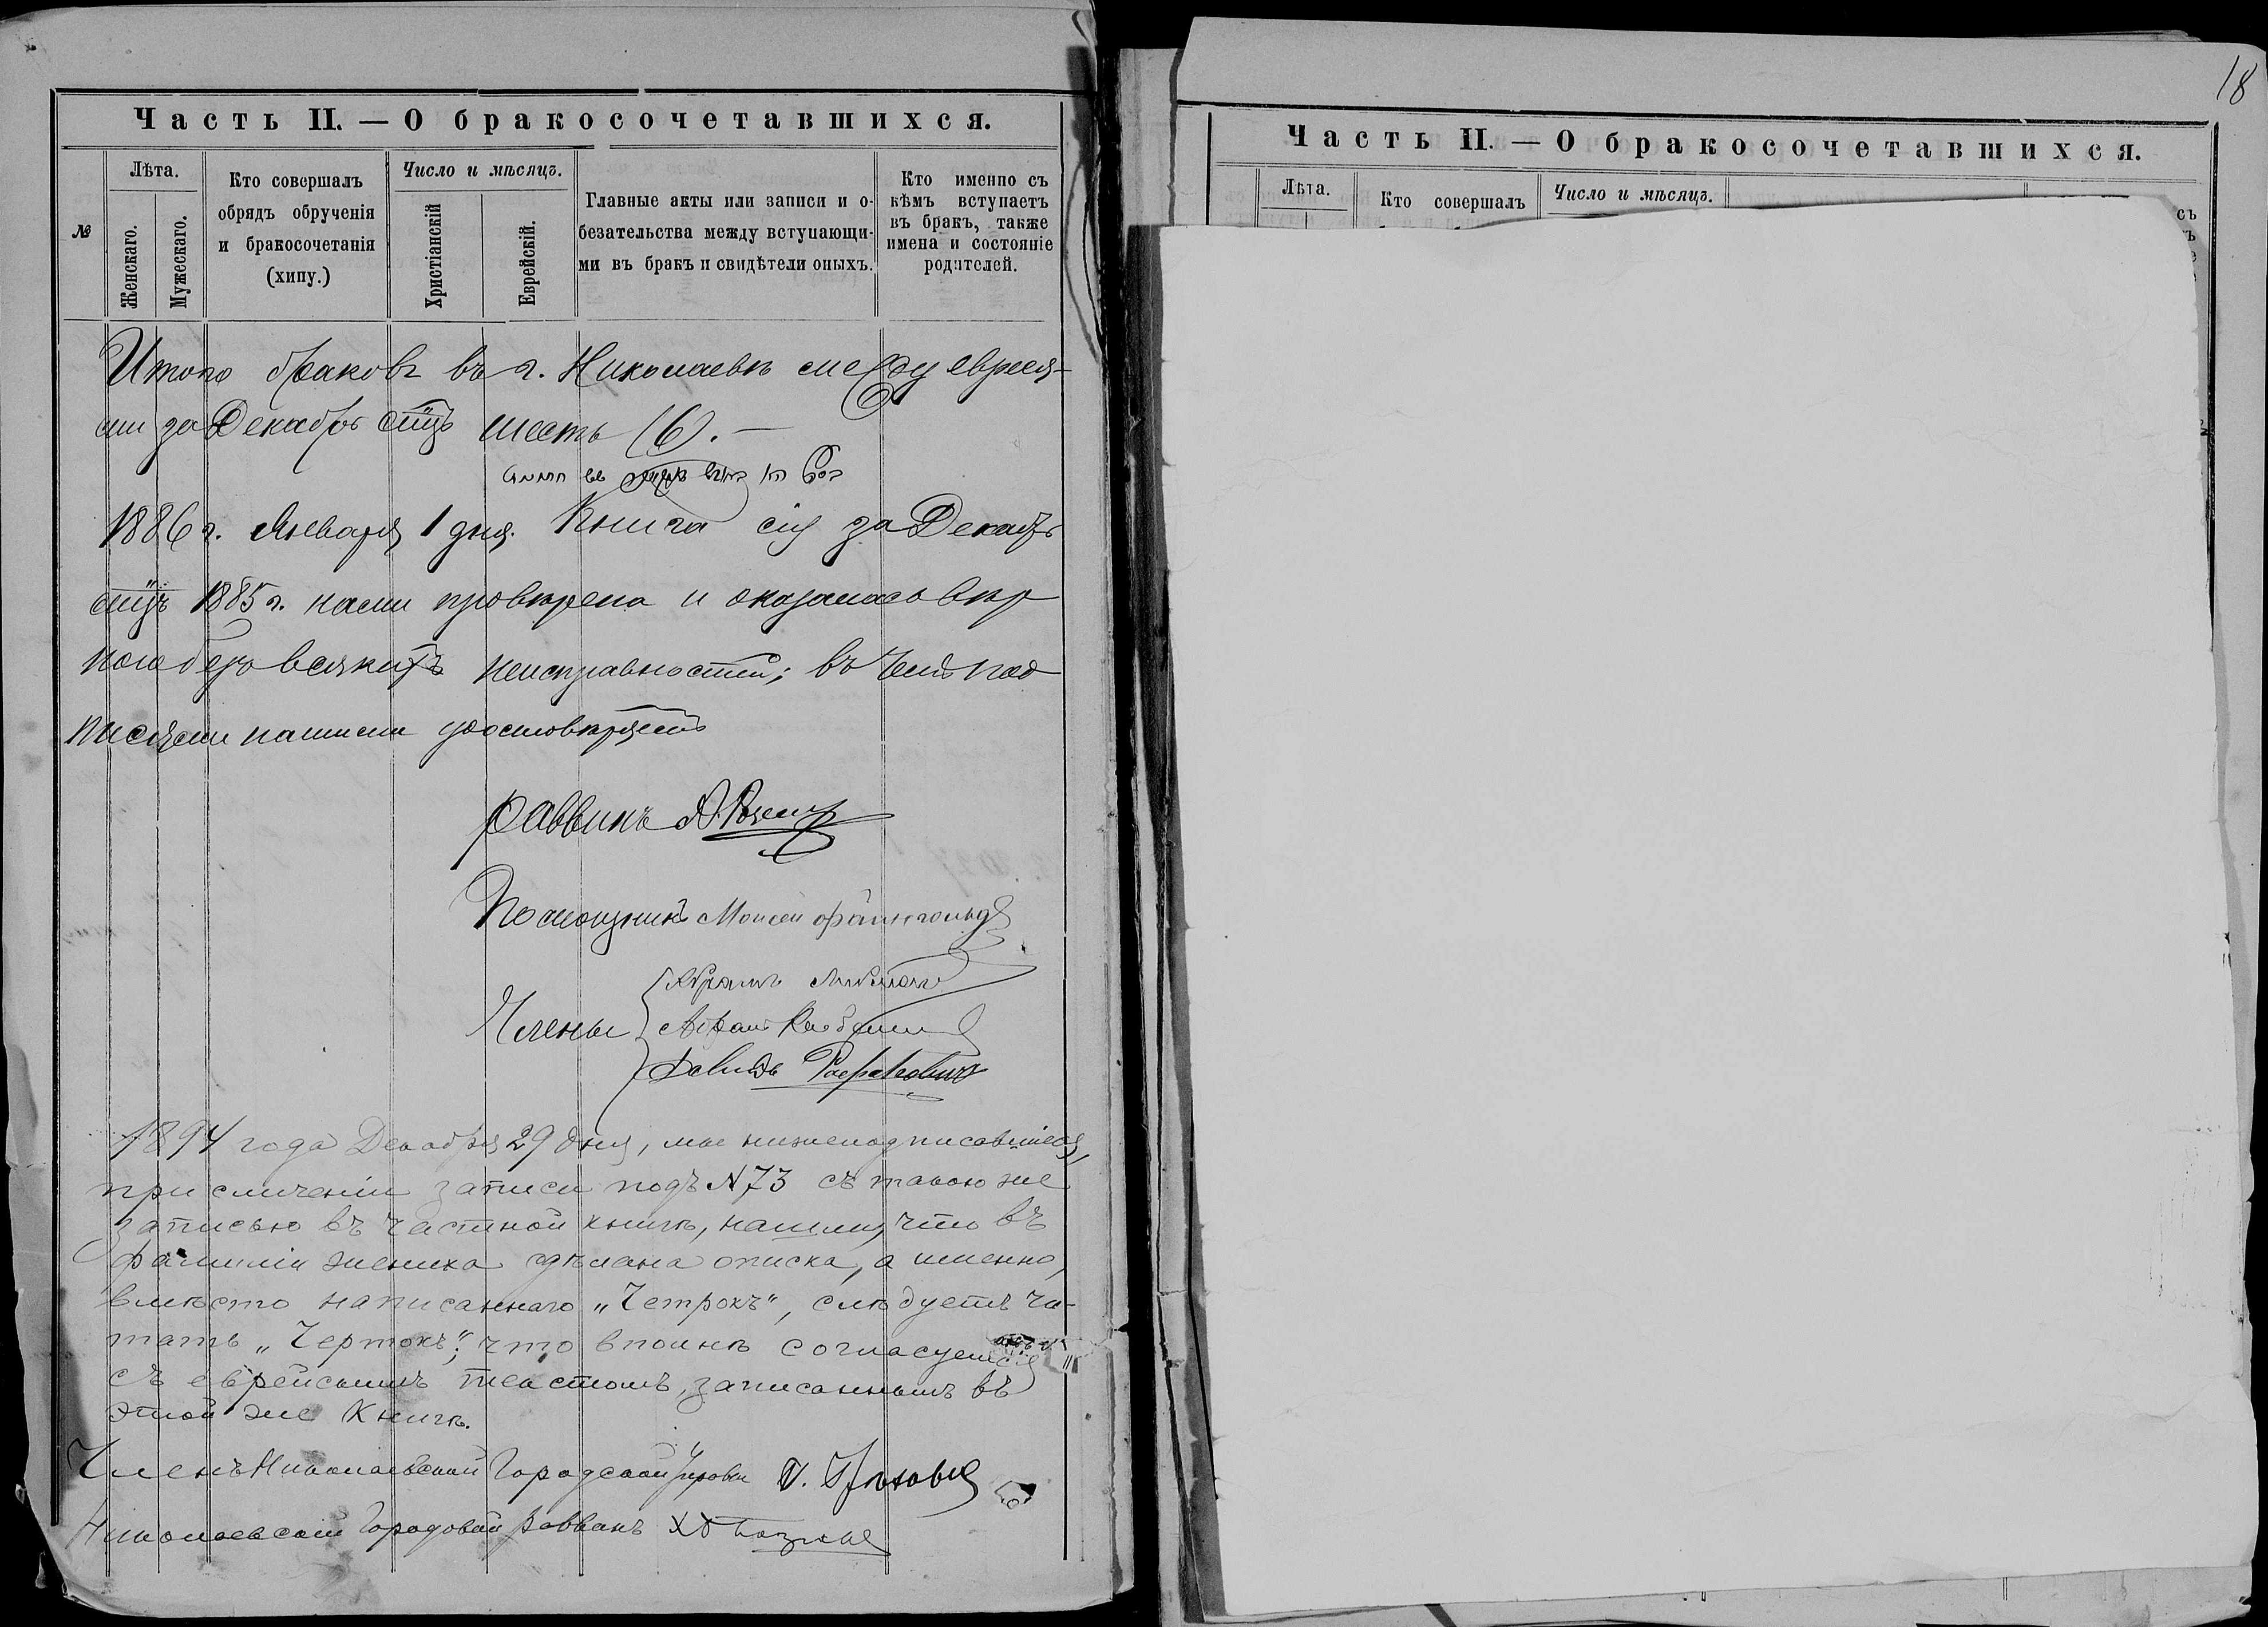 Часть II. — О бракосочетавшихся.
№
Лѣта.
Женскаго.
Мужескаго.
Кто совершалъ
обрядъ обрученія
и бракосочетанія
(хипу.)
Число и мѣсяцъ.
Христіанскій
Еврейскій.
Главные акты или записи и о-
безательства между вступающи-
ми въ бракъ и свидѣтели оныхъ.
Кто именно съ
кѣмъ вступаетъ
въ бракъ, также
имена и состояніе
родителей.
Итого браковъ въ г. Николаевѣ между еврея-
ми за Декабрь мцъ шесть (6). —
1886 г. Января 1 дня. Книга сія за Декабрь
мцъ 1885 г. нами провѣрена и оказалась вѣр
ною безъ всякихъ неисправностей; въ чемъ под
писями нашими удостовѣряемъ
Раввинъ
Помощникъ Моисей Файнгольдъ
Члены
Абрамъ
Давидъ Рафаловичъ
1894 года Декабря 29 дня, мы нижеподписавшіеся,
при сличеніи записи подъ N 73 съ таковою же
записью въ частной книгѣ, нашли, что въ
фамиліи жениха сдѣлана описка, а именно,
вмѣсто написаннаго „Четрокъ", слѣдуетъ чи-
тать „Чертокъ"; что вполнѣ согласуется
съ еврейскимъ текстомъ, записаннымъ въ
этой же Книгѣ.
Членъ Николаевской Городской Управы
Николаевскій Городовой Раввинъ
18
Часть II. — О бракосочетавшихся.
Лѣта.
Кто совершалъ
Число и мѣсяцъ.